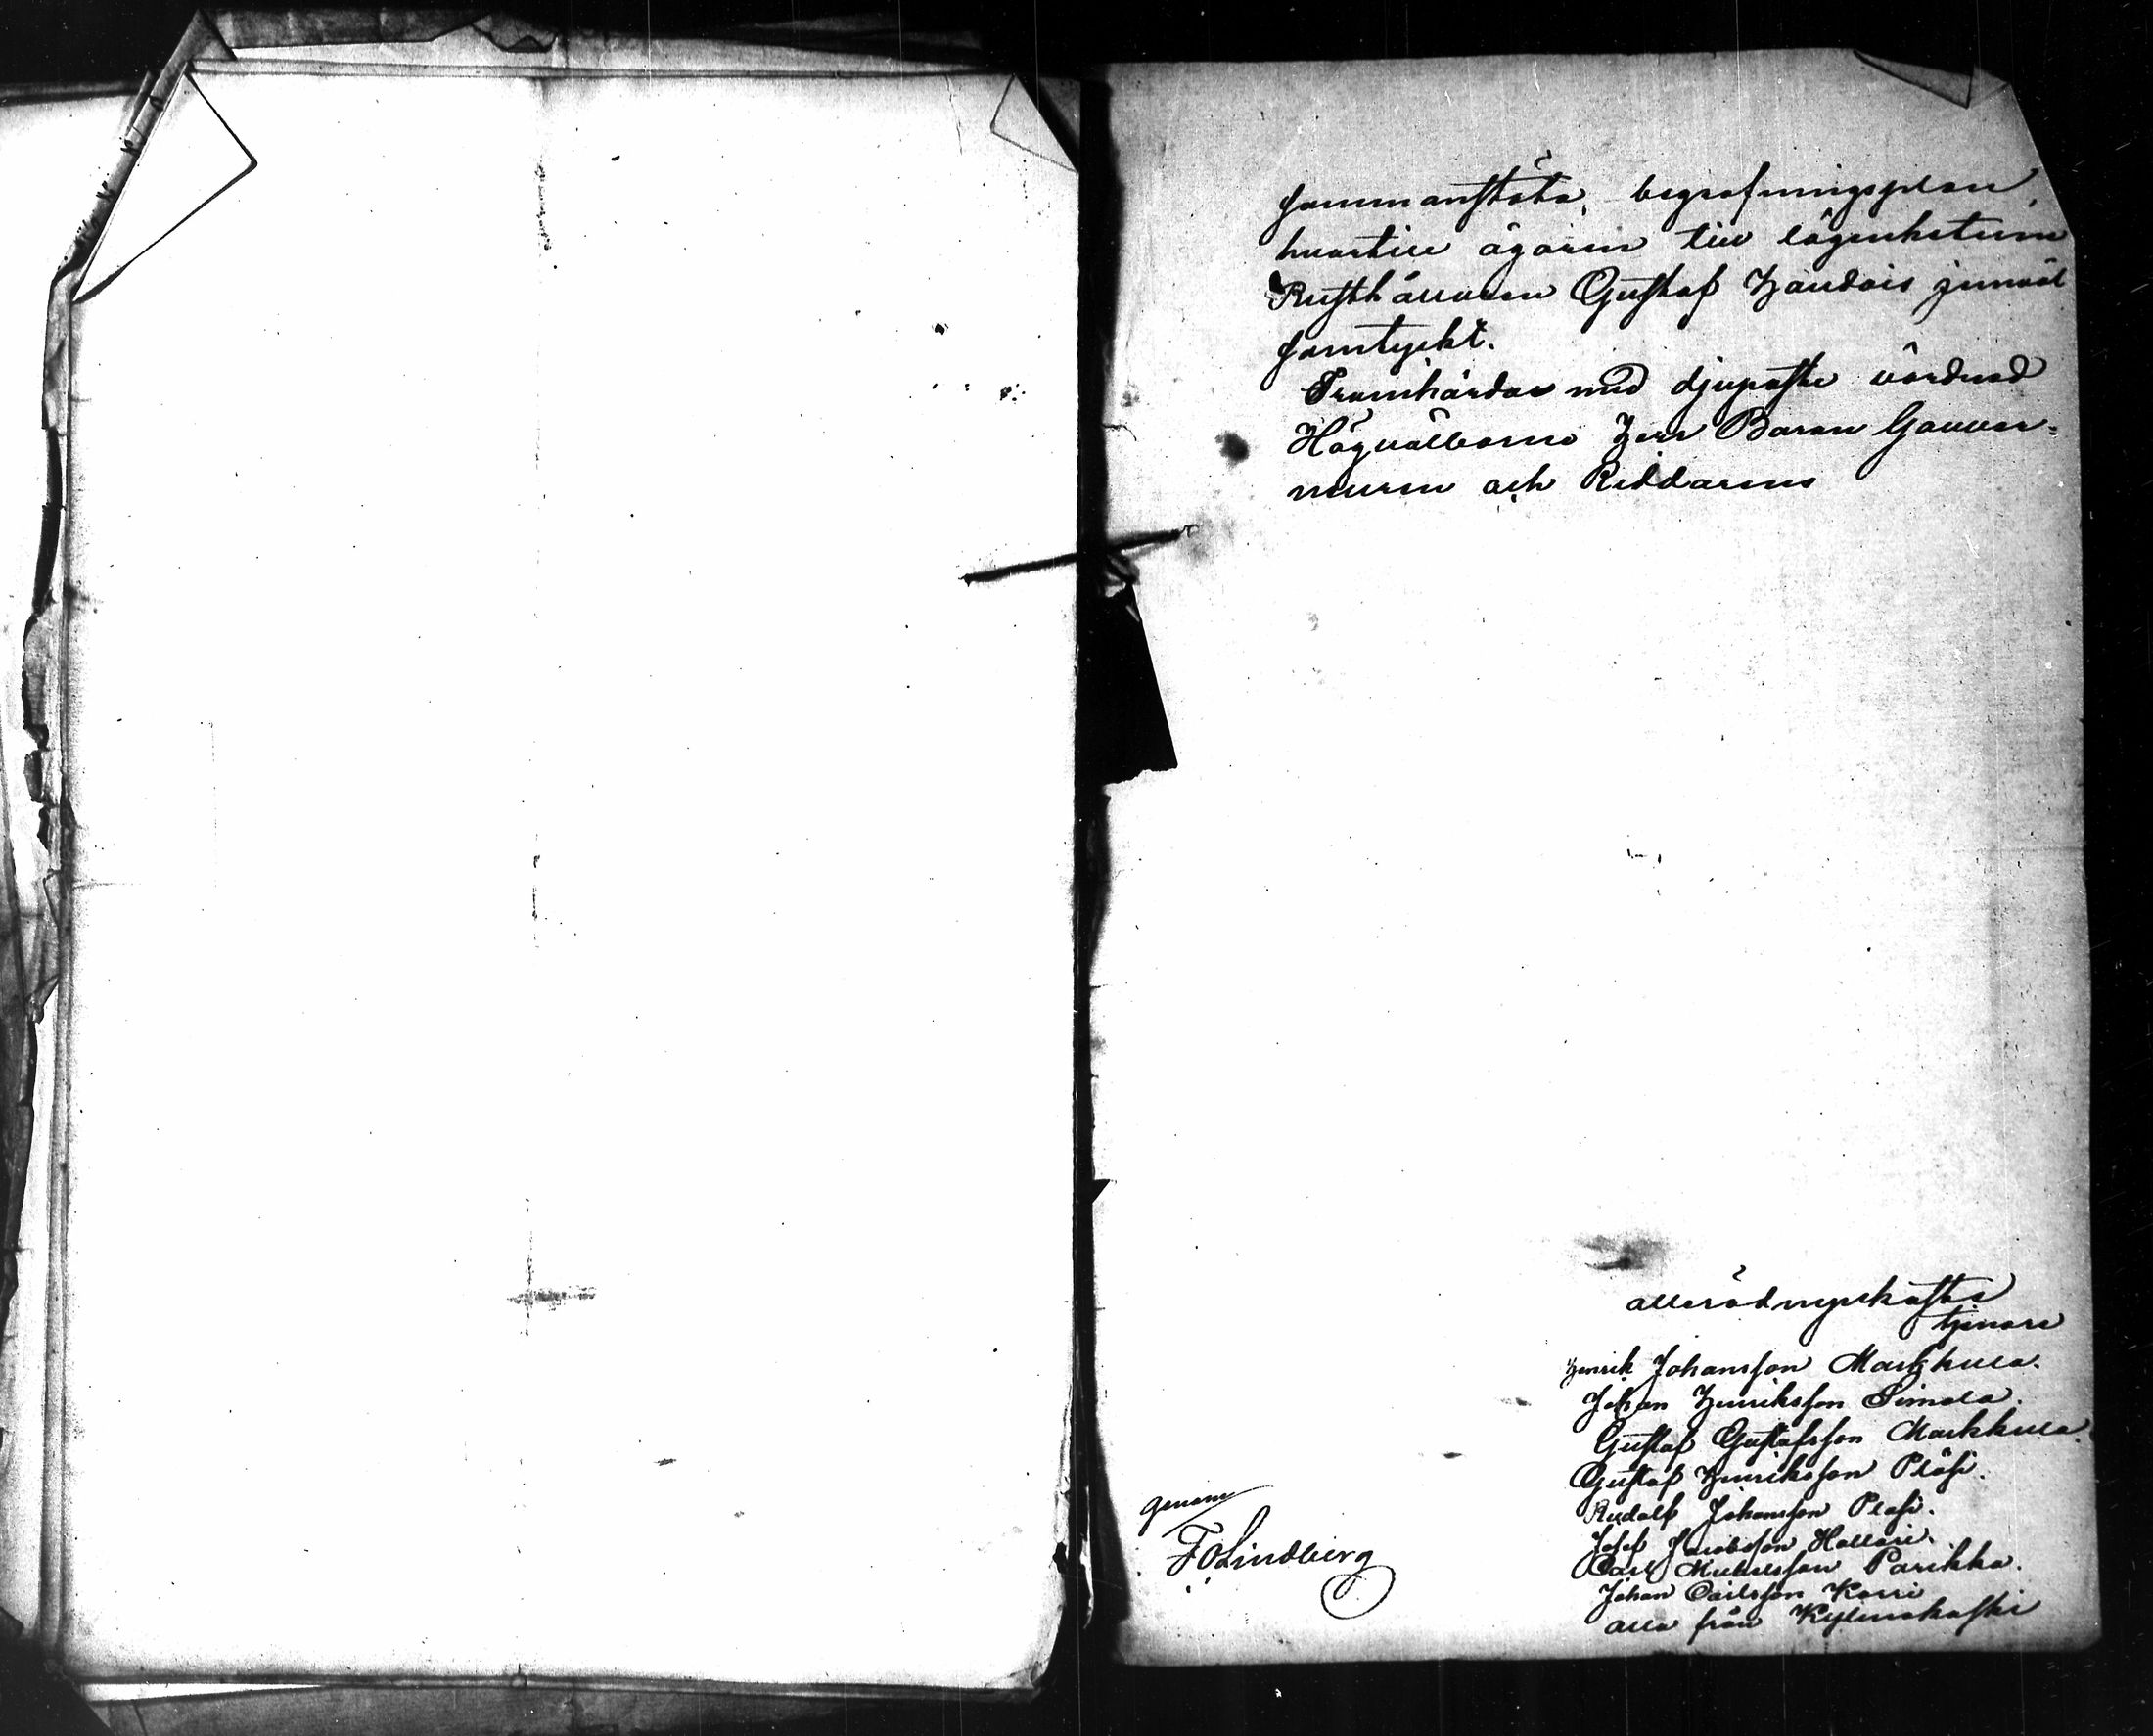 sammanstöta, begrafningsplan,
hvartill ägaren till lägenheterna
Rusthållaren Gustaf Handois jemväl
samtyckt.
Framhärdar med djupaste vördnad
Högvälborne Herr Baron Guver=
neuren och Riddarens
allerödmjukaste
tjenare
Henrik Johansson Markkula.
Johan Henriksson Simola.
Gustaf Gustafsson Markkula.
Gustaf Henriksson Pläsi.
Rudolf Johansson Pläsi.
Josef Jacobsson Hollari.
Carl Michelsson Parikka.
Johan Carlsson Korri
alla från Kylmäkoski
genom
F O Lindberg